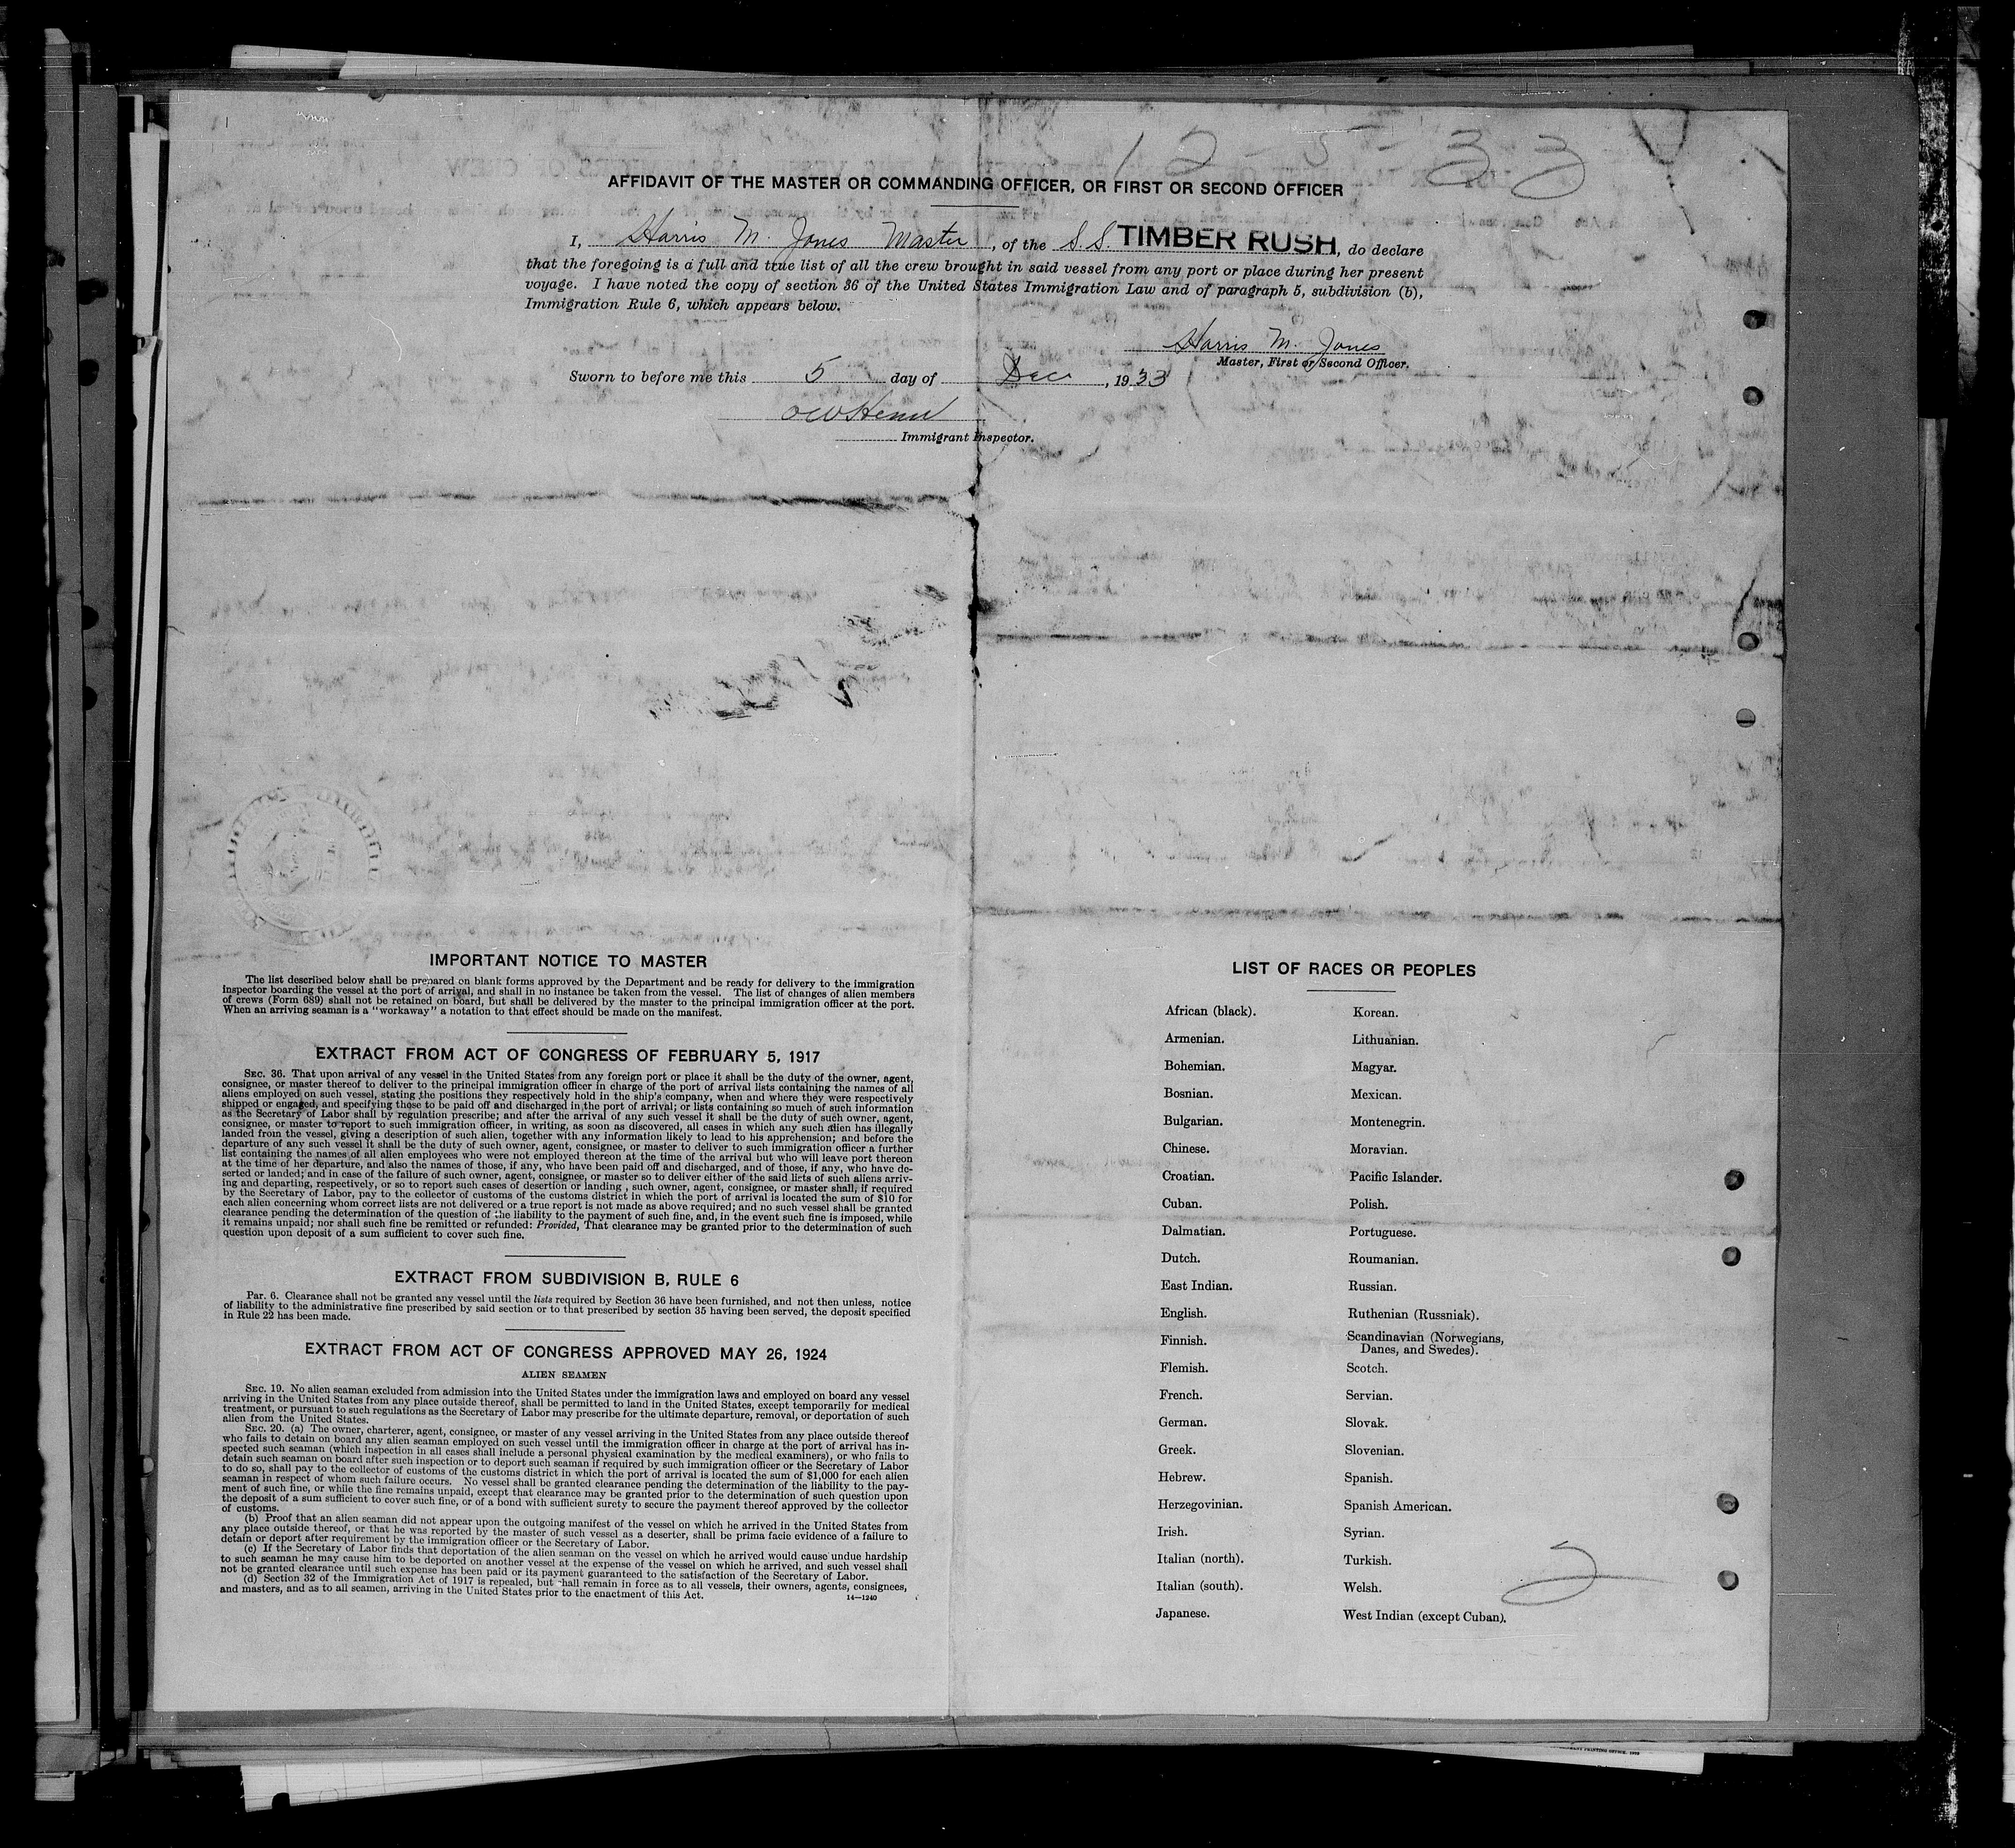 12-5-33
AFFIDAVIT OF THE MASTER OR COMMANDING OFFICER, OR FIRST OR SECOND OFFICER
I, Harris M. Jones Master, of the S.S. TIMBER RUSH, do declare
that the foregoing is a full and true list of all the crew brought in said vessel from any port or place during her present
voyage. I have noted the copy of section 36 of the United States Immigration Law and of paragraph 5, subdivision (b),
Immigration Rule 6, which appears below.
Harris M. Jones
Master, First or Second Officer.
Sworn to before me this 5 day of Dec, 1933
Immigrant Inspector.
IMPORTANT NOTICE TO MASTER
The list described below shall be prepared on blank forms approved by the Department and be ready for delivery to the immigration
inspector boarding the vessel at the port of arrival, and shall in no instance be taken from the vessel. The list of changes of alien members
of crews (Form 689) shall not be retained on board, but shall be delivered by the master to the principal immigration officer at the port.
When an arriving seaman is a "workaway" a notation to that effect should be made on the manifest.
EXTRACT FROM ACT OF CONGRESS OF FEBRUARY 5, 1917
SEC. 36. That upon arrival of any vessel in the United States from any foreign port or place it shall be the duty of the owner, agent,
consignee, or master thereof to deliver to the principal immigration officer in charge of the port of arrival lists containing the names of all
aliens employed on such vessel, stating the positions they respectively hold in the ship's company, when and where they were respectively
shipped or engaged, and specifying those to be paid off and discharged in the port of arrival; or lists containing so much of such information
as the Secretary of Labor shall by regulation prescribe; and after the arrival of any such vessel it shall be the duty of such owner, agent,
consignee, or master to report to such immigration officer, in writing, as soon as discovered, all cases in which any such alien has illegally
landed from the vessel, giving a description of such alien, together with any information likely to lead to his apprehension; and before the
departure of any such vessel it shall be the duty of such owner, agent, consignee, or master to deliver to such immigration officer a further
list containing the names of all alien employees who were not employed thereon at the time of the arrival but who will leave port thereon
at the time of her departure, and also the names of those, if any, who have been paid off and discharged, and of those, if any, who have de-
serted or landed; and in case of the failure of such owner, agent, consignee, or master so to deliver either of the said lists of such aliens arriv-
ing and departing, respectively, or so to report such cases of desertion or landing , such owner, agent, consignee, or master shall, if required
by the Secretary of Labor, pay to the collector of customs of the customs district in which the port of arrival is located the sum of $10 for
each alien concerning whom correct lists are not delivered or a true report is not made as above required; and no such vessel shall be granted
clearance pending the determination of the question of the liability to the payment of such fine, and, in the event such fine is imposed, while
it remains unpaid; nor shall such fine be remitted or refunded: Provided, That clearance may be granted prior to the determination of such
question upon deposit of a sum sufficient to cover such fine.
EXTRACT FROM SUBDIVISION B, RULE 6
Par. 6. Clearance shall not be granted any vessel until the lists required by Section 36 have been furnished, and not then unless, notice
of liability to the administrative fine prescribed by said section or to that prescribed by section 35 having been served, the deposit specified
in Rule 22 has been made.
EXTRACT FROM ACT OF CONGRESS APPROVED MAY 26, 1924
ALIEN SEAMEN
SEC. 19. No alien seaman excluded from admission into the United States under the immigration laws and employed on board any vessel
arriving in the United States from any place outside thereof, shall be permitted to land in the United States, except temporarily for medical
treatment, or pursuant to such regulations as the Secretary of Labor may prescribe for the ultimate departure, removal, or deportation of such
alien from the United States.
SEC. 20. (a) The owner, charterer, agent, consignee, or master of any vessel arriving in the United States from any place outside thereof
who fails to detain on board any alien seaman employed on such vessel until the immigration officer in charge at the port of arrival has in-
spected such seaman (which inspection in all cases shall include a personal physical examination by the medical examiners), or who fails to
detain such seaman on board after such inspection or to deport such seaman if required by such immigration officer or the Secretary of Labor
to do so, shall pay to the collector of customs of the customs district in which the port of arrival is located the sum of $1,000 for each alien
seaman in respect of whom such failure occurs. No vessel shall be granted clearance pending the determination of the liability to the pay-
ment of such fine, or while the fine remains unpaid, except that clearance may be granted prior to the determination of such question upon
the deposit of a sum sufficient to cover such fine, or of a bond with sufficient surety to secure the payment thereof approved by the collector
of customs.
(b) Proof that an alien seaman did not appear upon the outgoing manifest of the vessel on which he arrived in the United States from
any place outside thereof, or that he was reported by the master of such vessel as a deserter, shall be prima facie evidence of a failure to
detain or deport after requirement by the immigration officer or the Secretary of Labor.
(c) If the Secretary of Labor finds that deportation of the alien seaman on the vessel on which he arrived would cause undue hardship
to such seaman he may cause him to be deported on another vessel at the expense of the vessel on which he arrived, and such vessel shall
not be granted clearance until such expense has been paid or its payment guaranteed to the satisfaction of the Secretary of Labor.
(d) Section 32 of the Immigration Act of 1917 is repealed, but shall remain in force as to all vessels, their owners, agents, consignees,
and masters, and as to all seamen, arriving in the United States prior to the enactment of this Act.
14—1240
LIST OF RACES OR PEOPLES
African (black).
Armenian.
Bohemian.
Bosnian.
Bulgarian.
Chinese.
Croatian.
Cuban.
Dalmatian.
Dutch.
East Indian.
English.
Finnish.
Flemish.
French.
German.
Greek.
Hebrew.
Herzegovinian.
Irish.
Italian (north).
Italian (south).
Japanese.
Korean.
Lithuanian.
Magyar.
Mexican.
Montenegrin.
Moravian.
Pacific Islander.
Polish.
Portuguese.
Roumanian.
Russian.
Ruthenian (Russniak).
Scandinavian (Norwegians,
Danes, and Swedes).
Scotch.
Servian.
Slovak.
Slovenian.
Spanish.
Spanish American.
Syrian.
Turkish.
Welsh.
West Indian (except Cuban).
2